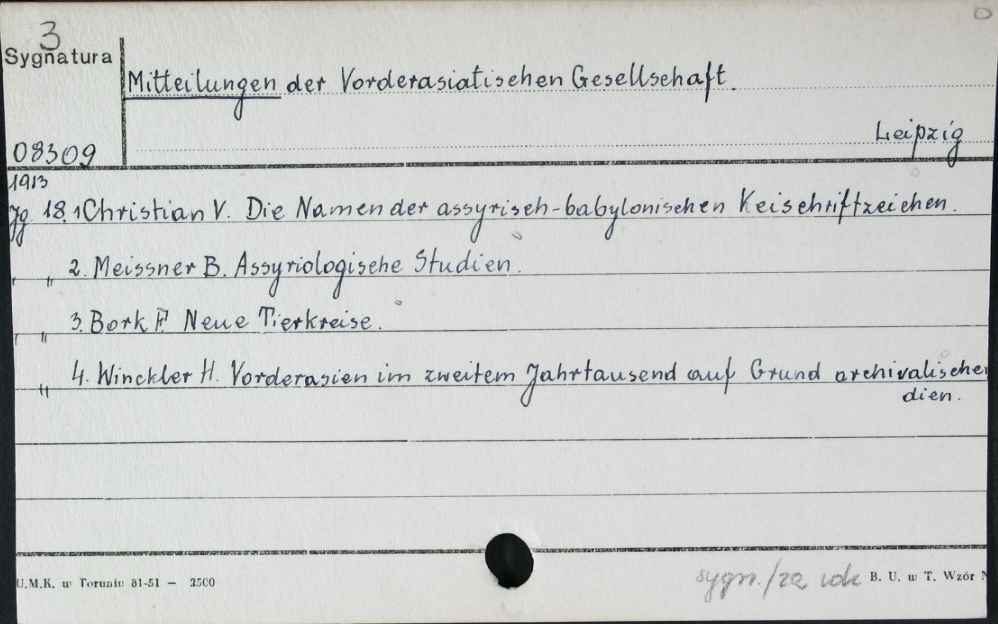 3
Sygnatura
Mitteilungen der Vorderasiatischen Gesellschaft.
Leipzig
08309
1913
Jg. 18. 1 Christian V. Die Namen der assyrisch-babylonischen Keischriftzeichen.
" " 2. Meissner B. Assyriologische Studien.
" " 3. Bork F. Neue Tierkreise.
" 4. Winckler H. Vorderasien im zweitem Jahrtausend auf Grund archivalischer
dien.
U.M.K. w Toruniu 81-51 — 2500
sygn./za B. U. w T. Wzór N